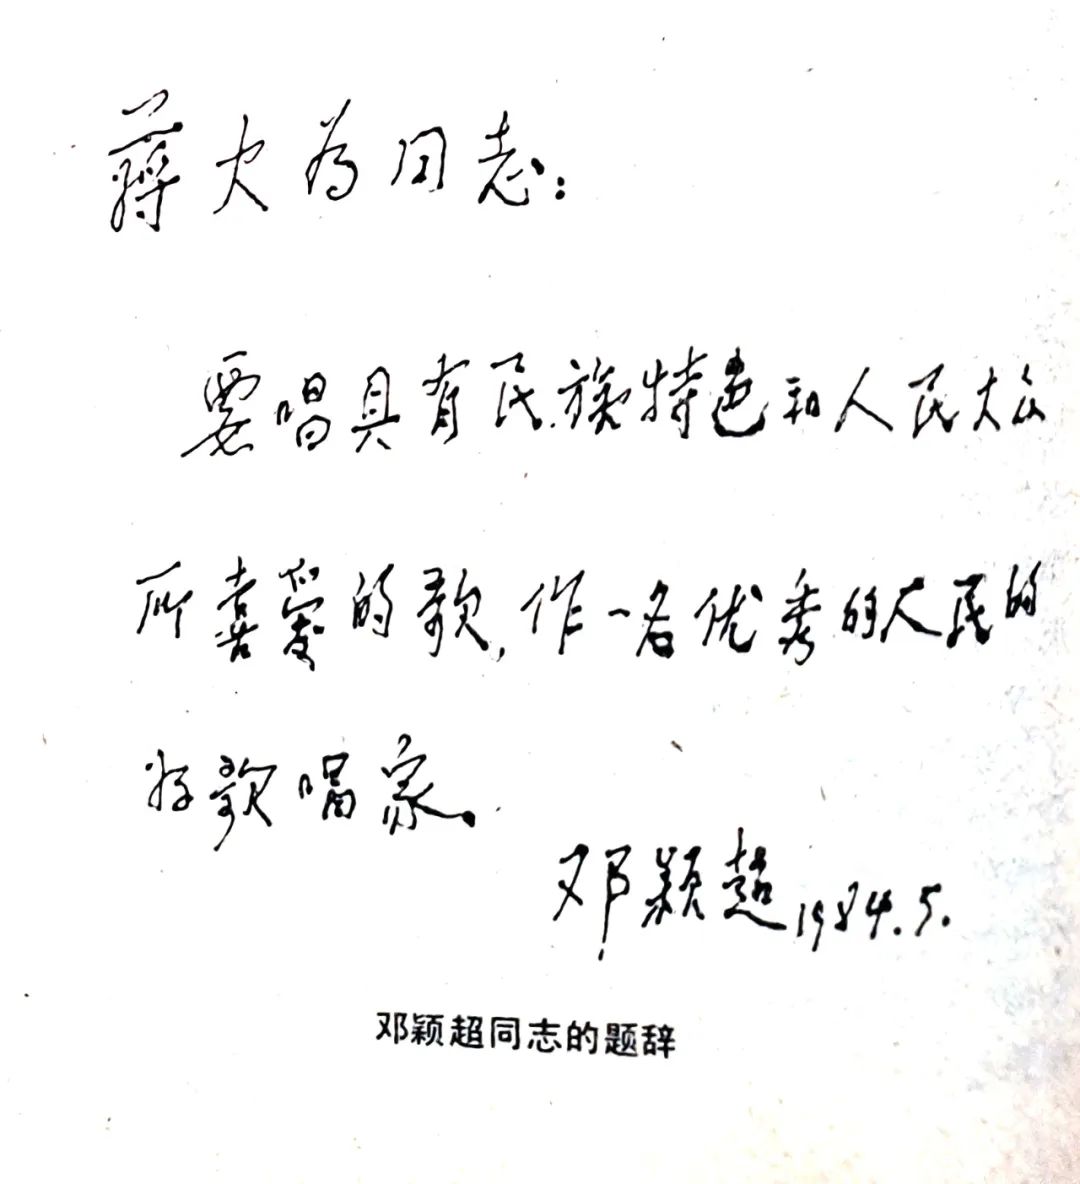 蒋大为同志：
要唱具有民族特色和人民大众
所喜爱的歌，作一名优秀的人民的
好歌唱家。
邓颖超1984.5.
邓颖超同志的题辞